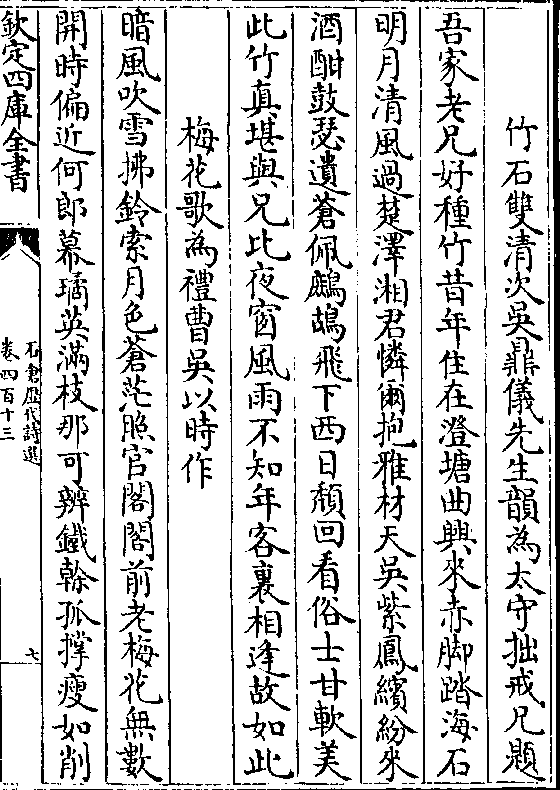 竹石雙清次吳鼎儀先生韻為太守拙戒兄題
吾家老兄好種竹昔年住在澄塘曲興來赤脚踏海石
明月清風過楚澤湘君憐爾抱雅材天吳紫鳳繽紛來
酒酣鼓瑟遺蒼佩鷓鴣飛下西日頹回看俗士甘軟美
此竹真堪與兄比夜窗風雨不知年客裏相逢故如此
梅花歌為禮曹吳以時作
暗風吹雪拂鈴索月色蒼茫照官閣閣前老梅花無數
開時偏近何郎幕璚英滿枝那可辨鐵榦孤撑瘦如削
欽定四庫全書
石倉歷代詩選
卷四百十三
七